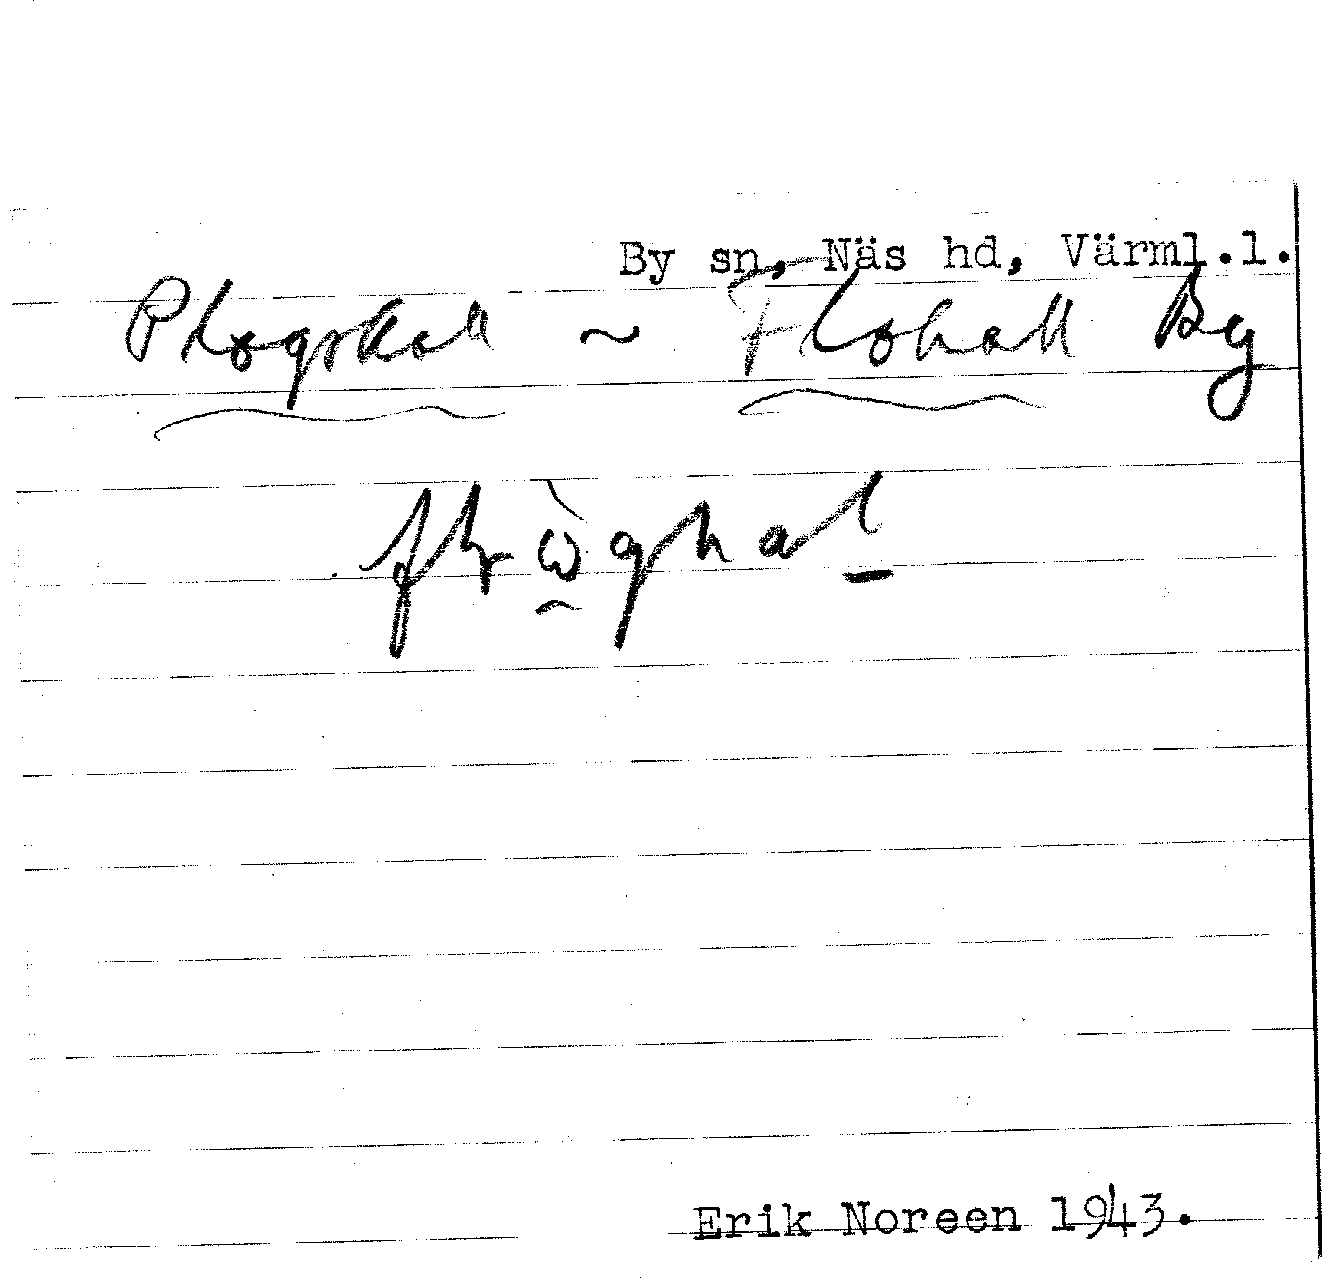 By sn, Näs hd, Värml.l.
Plogskall ~ Flohall By
Erik Noreen 1943.